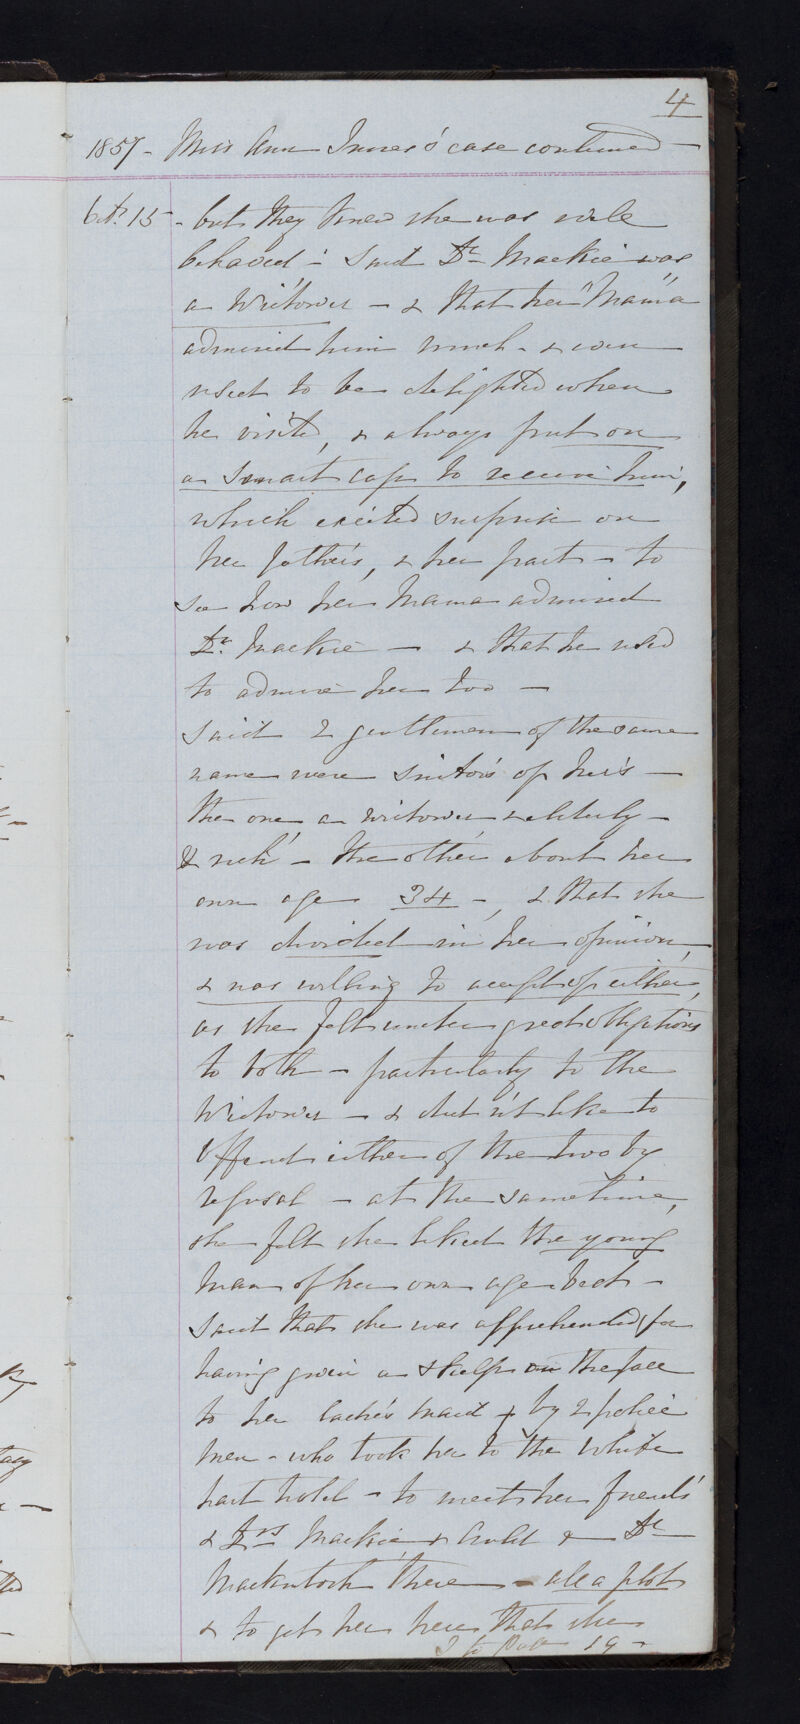 4
1857 - Miss Ann Innes's case continued -
Octr. 15 - but they knew she was well
behaved - said Dr Mackie was
a Widower - & that her "Mama"
admired him much - &
used to be delighted when
he visited, & always put on
a smart cap to receive him,
which excited surprise on
her father's, & her part - to
see how her Mama admired
Dr. Mackie - & that he used
to admire her too -
Said 2 gentlemen of the same
name were suitors of her's -
the one a widower & elderly -
& rich - the other about her
own age 34 -, & that she
was divided in her opinion,
& was willing to accept of either,
as she felt under great obligations
to both - particularly to the
Widower - & didn't like to
offend either of the two by
refusal - at the same time,
she felt she liked the young
man of her own age best -
Said that she was apprehended for
having given a skelp on the face
to her ladie's maid & by 2 police
men - who took her to the White
hart hotel - to meet her friends
& Drs Mackie & & Dr
Mackintosh there - all a plot
& to get her here that she
19 -